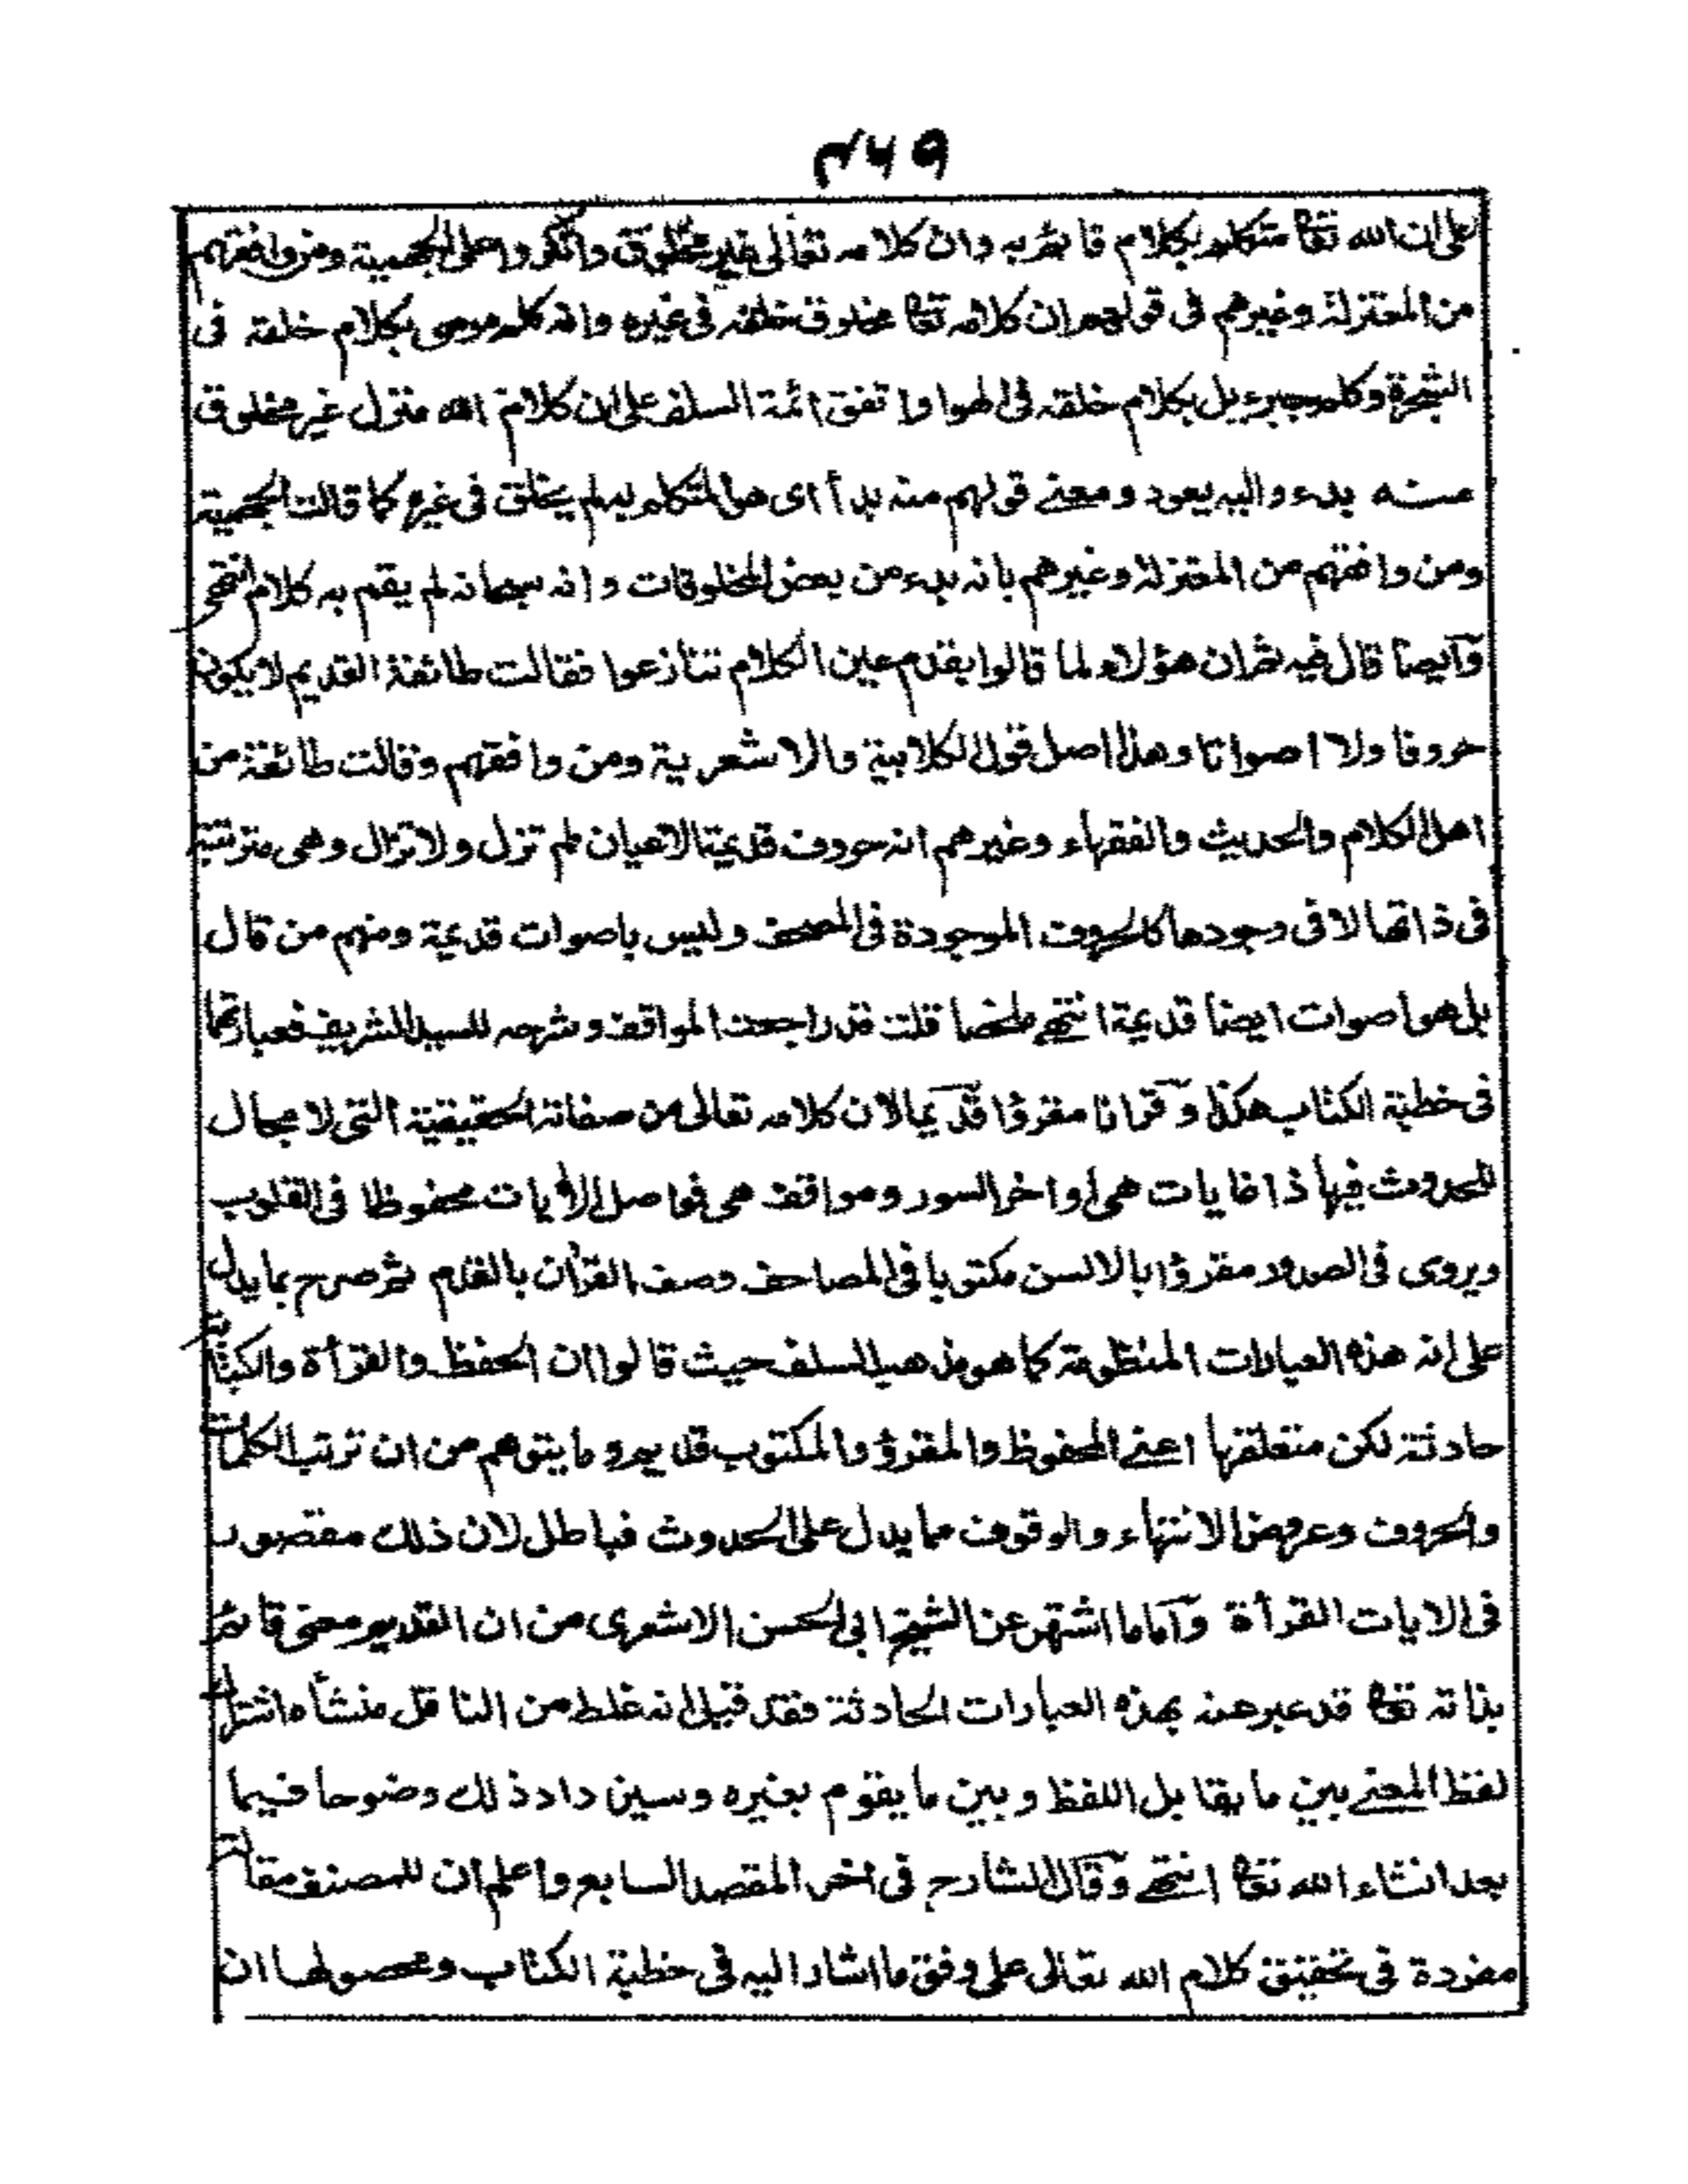 ٣٧٩
على ان الله تعا متكلم بكلام قائم به وان كلامه تعالى غير مخلوق وانكروا على الجهمية ومن وافقهم
من المعتزلة وغيرهم فى قولهم ان كلامه تعا مخلوق خلقه فى غيره وانه كلم موسى بكلام خلقه فى
الشجرة وكلم جبرءيل بكلام خلقه فى الهوا واتفق ائمة السلف على ان كلام الله منزل غير مخلوق
منه بدء واليه يعود ومعنے قولهم منه بدأ اى هو المتكلم به لم يخلق فى غيره كما قالت الجهمية
ومن وافقهم من المعتزلة وغيرهم بانه بدء من بعض المخلوقات وانه سبحانه لم يقم به كلام انتهى
وآيضاً قال فيه ثم ان هؤلاء لما قالوا بقدم عين الكلام تنازعوا فقالت طائفة القديم لا يكون
حروفا ولا اصواتا وهذا اصل قول الكلابية والاشعرية ومن وافقهم وقالت طائفة من
اهل الكلام والحديث والفقهاء وغيرهم انه حروف قديمة الاعيان لم تزل ولا تزال وهى مترتبة
فى ذاتها لا فى وجودها كالحروف الموجودة فى المصحف وليس باصوات قديمة ومنهم من قال
بل هو اصوات ايضاً قديمة انتهے ملخصا قلت قد راجعت المواقف وشرحه للسيد الشريف فعبارتهما
فى خطبة الكتاب هكذا وٓقرانا مقرؤا قدٓيما لان كلامه تعالى من صفاته الحقيقية التى لا مجال
للحدوث فيها ذا غايات هى اواخر السور ومواقف هى فواصل الأيات محفوظا فى القلوب
ويروى فى الصدور مقرؤا بالالسن مكتوبا فى المصاحف وصف القرأن بالقدم ثم صرح بما يدل
على انه هذه العبارات المنظومة كما هو مذهب السلف حيث قالوا ان الحفظ والقرأة والكتابة
حادثة لكن متعلقها اعنے المحفوظ والمقرؤ والمكتوب قديم وما يتوهم من ان ترتب الكلمات
والحروف وعروض الانتهاء والوقوف مما يدل على الحدوث فباطل لان ذلك مقصور
فى الايات القرأة وٓاما ما اشتهر عن الشيخ ابى الحسن الاشعرى من ان القديم معنى قائم
بذاته تعا قد عبر عنه بهذه العبارات الحادثة فقد قيل انه غلط من الناقل منشأه اشتراك
لفظ المعنے بين ما يقابل اللفظ وبين ما يقوم بغيره وسين داد ذلك وضوحا فيما
بعد انشاء الله تعا انتهے وٓقال الشارح فى اخر المقصد السابع واعلم ان للمصنف مقالة
مفردة فى تحقيق كلام الله تعالى على وفق ما اشار اليه فى خطبة الكتاب ومحصولها ان